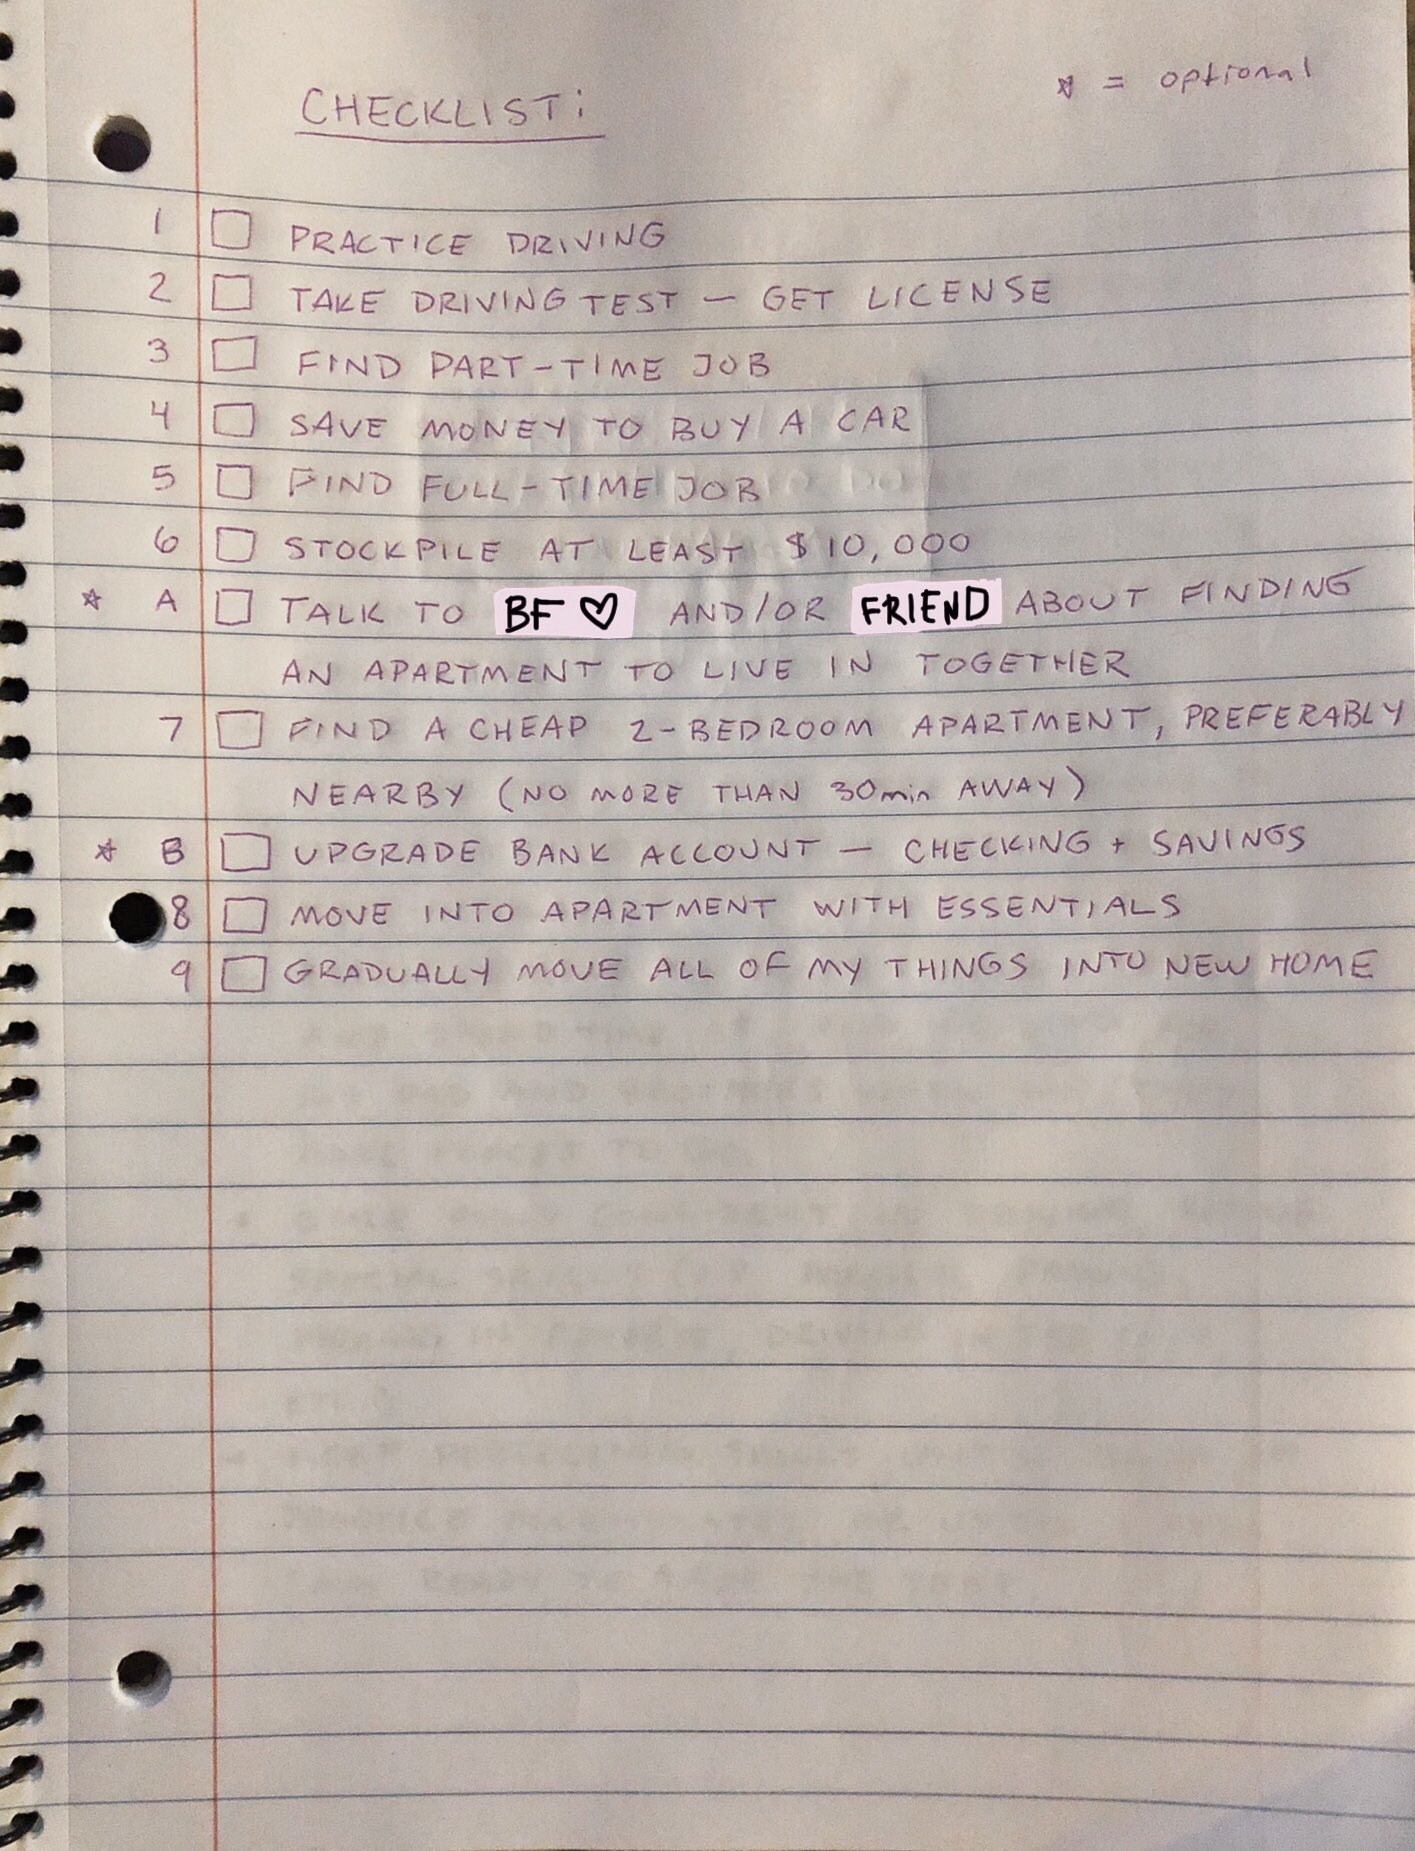 ☆ = optional
CHECKLIST:
1 □ PRACTICE DRIVING
2 □ TAKE DRIVING TEST — GET LICENSE
3 □ FIND PART-TIME JOB
4 □ SAVE MONEY TO BUY A CAR
5 □ FIND FULL-TIME JOB
6 □ STOCKPILE AT LEAST $10,000
☆ A □ TALK TO BF ♡ AND/OR FRIEND ABOUT FINDING
AN APARTMENT TO LIVE IN TOGETHER
7 □ FIND A CHEAP 2-BEDROOM APARTMENT, PREFERABLY
NEARBY (NO MORE THAN 30min AWAY)
☆ B □ UPGRADE BANK ACCOUNT — CHECKING + SAVINGS
8 □ MOVE INTO APARTMENT WITH ESSENTIALS
9 □ GRADUALLY MOVE ALL OF MY THINGS INTO NEW HOME